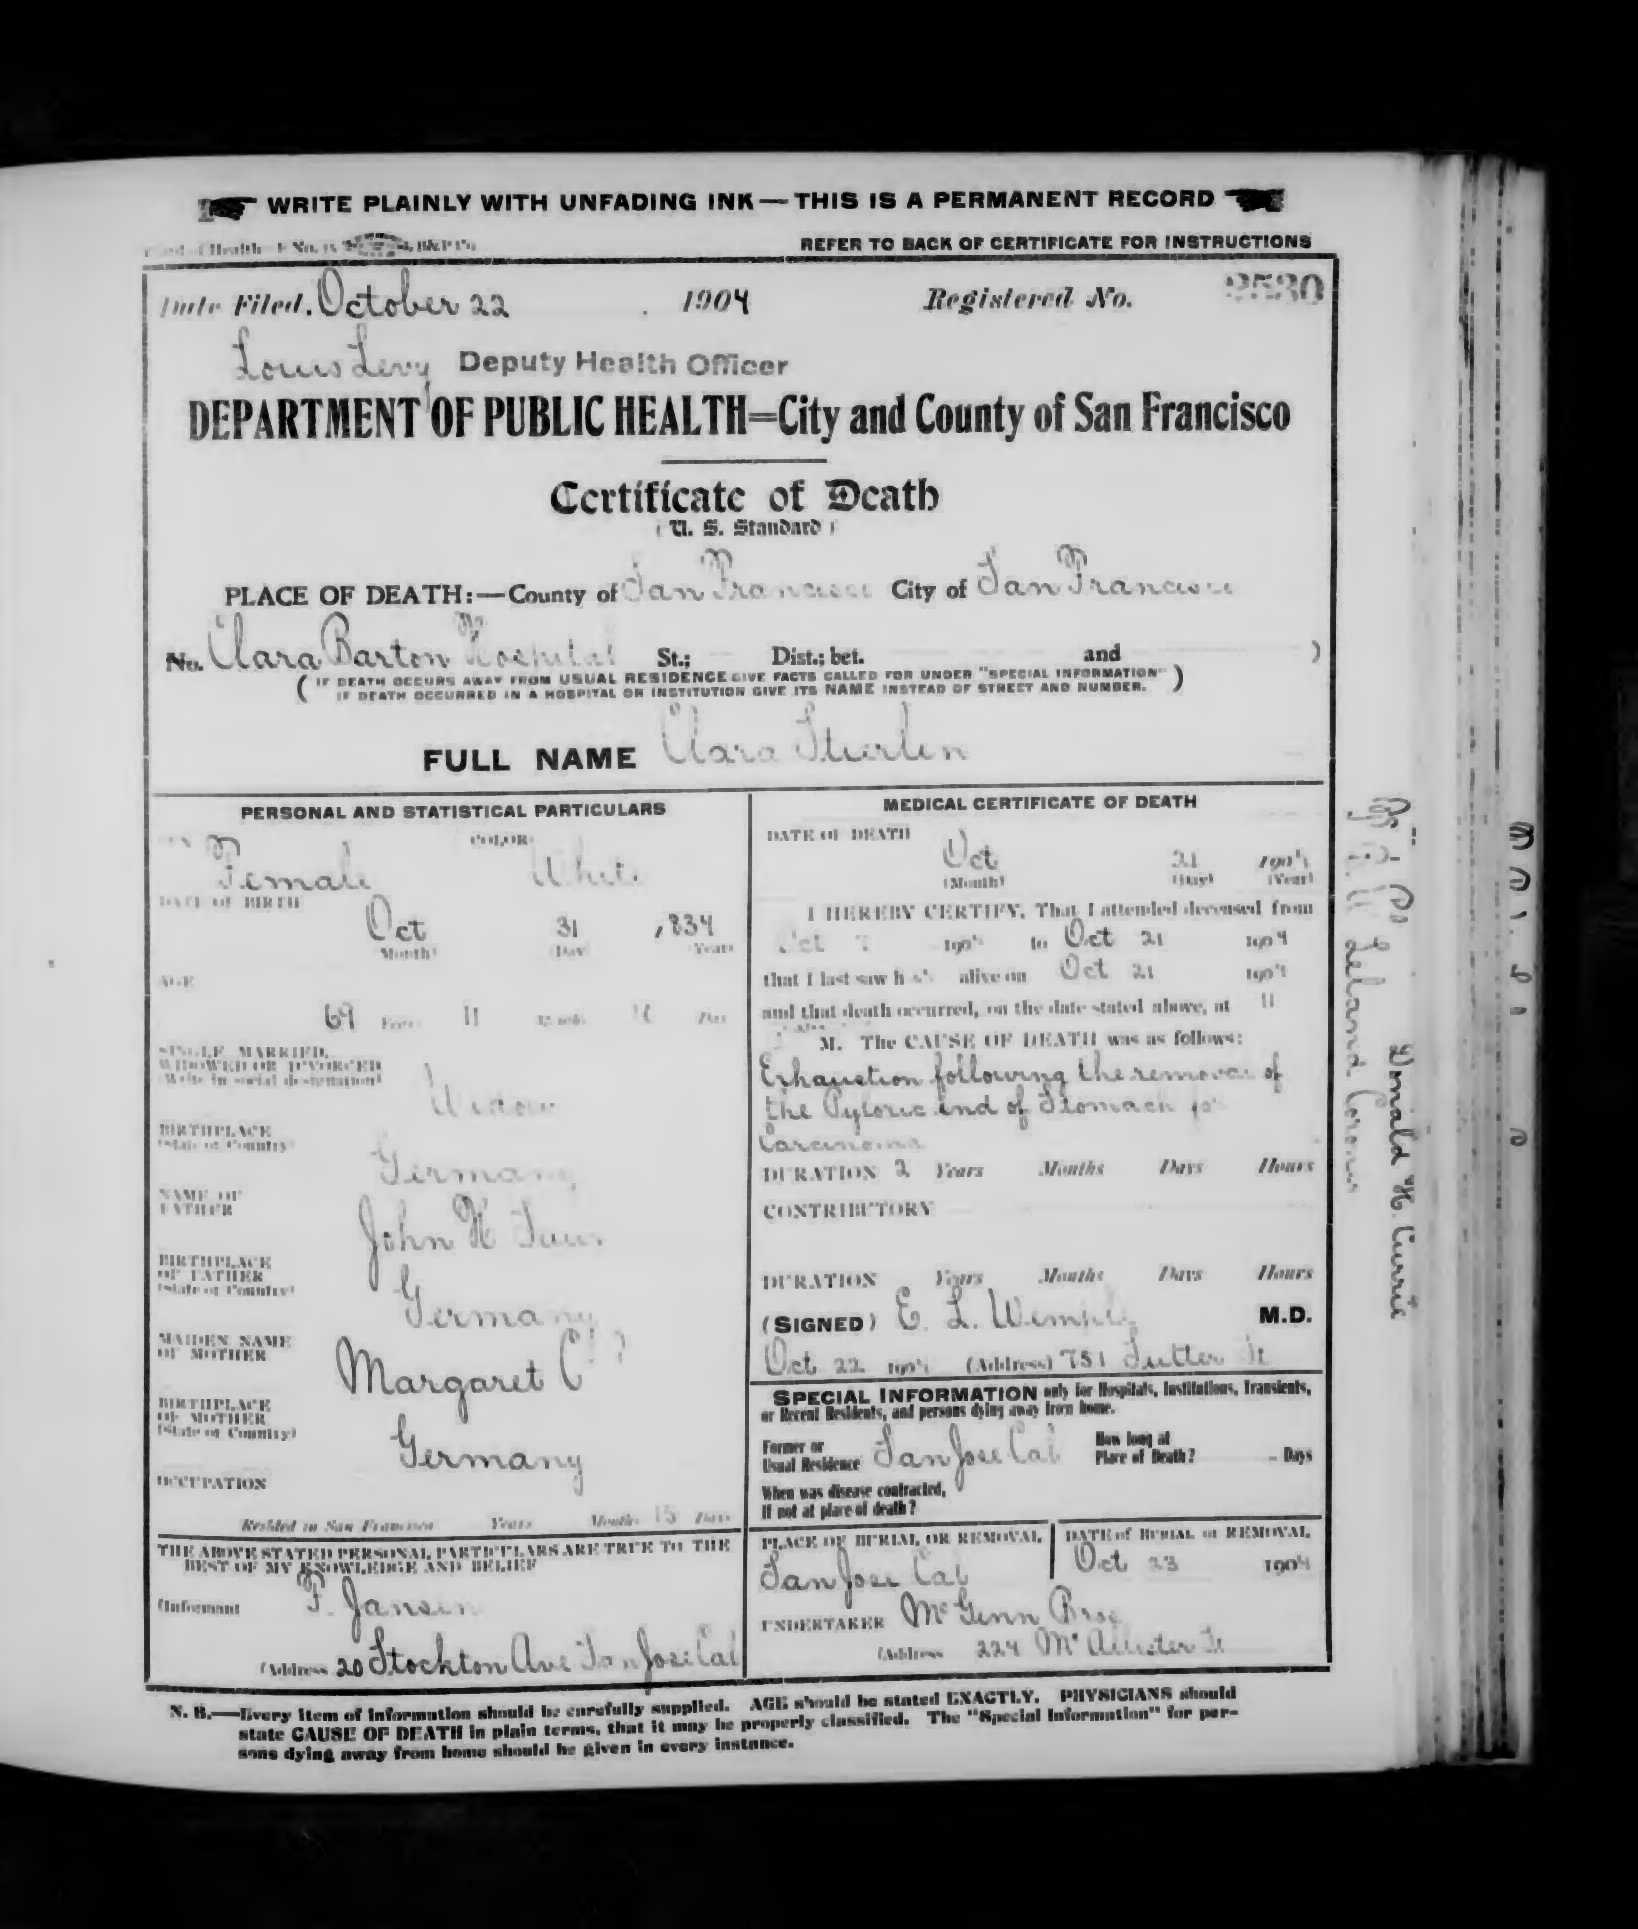 WRITE PLAINLY WITH UNFADING INK — THIS IS A PERMANENT RECORD
REFER TO BACK OF CERTIFICATE FOR INSTRUCTIONS
Date Filed. October 22 1904 Registered No. 2530
Louis Levy Deputy Health Officer
DEPARTMENT OF PUBLIC HEALTH=City and County of San Francisco
Certificate of Death
(U. S. Standard)
PLACE OF DEATH:—County of San Francisco City of San Francisco
No. Clara Barton Hospital St.; Dist.; bet. and )
( IF DEATH OCCURS AWAY FROM USUAL RESIDENCE GIVE FACTS CALLED FOR UNDER "SPECIAL INFORMATION" )
IF DEATH OCCURRED IN A HOSPITAL OR INSTITUTION GIVE ITS NAME INSTEAD OF STREET AND NUMBER.
FULL NAME Clara Stierlen
PERSONAL AND STATISTICAL PARTICULARS
COLOR
Female White
DATE OF BIRTH
Oct 31 1834
(Month) (Day) (Year)
AGE
69 Years 11 Months Days
SINGLE, MARRIED,
WIDOWED OR DIVORCED
(Write in social designation)
Widow
BIRTHPLACE
(State or Country)
Germany
NAME OF
FATHER
John H
BIRTHPLACE
OF FATHER
(State or Country)
Germany
MAIDEN NAME
OF MOTHER
Margaret C
BIRTHPLACE
OF MOTHER
(State or Country)
Germany
OCCUPATION
Resided in San Francisco Years Months 15 Days
THE ABOVE STATED PERSONAL PARTICULARS ARE TRUE TO THE
BEST OF MY KNOWLEDGE AND BELIEF
(Informant F. Jansen
(Address 20 Stockton Ave San Jose Cal
MEDICAL CERTIFICATE OF DEATH
DATE OF DEATH
Oct 21 1904
(Month) (Day) (Year)
I HEREBY CERTIFY, That I attended deceased from
Oct 7 1904 to Oct 21 1904
that I last saw her alive on Oct 21 1904
and that death occurred, on the date stated above, at 11
M. The CAUSE OF DEATH was as follows:
Exhaustion following the removal of
the Pyloric end of Stomach for
Carcinoma
DURATION 2 Years Months Days Hours
CONTRIBUTORY
DURATION Years Months Days Hours
(SIGNED) E. L. Wemple M.D.
Oct 22 1904 (Address) 751 Sutter St
SPECIAL INFORMATION only for Hospitals, Institutions, Transients,
or Recent Residents, and persons dying away from home.
Former or
Usual Residence San Jose Cal
How long at
Place of Death? Days
When was disease contracted,
If not at place of death?
PLACE OF BURIAL OR REMOVAL
San Jose Cal
DATE of BURIAL or REMOVAL
Oct 23 1904
UNDERTAKER McGinn Bros
(Address 224 McAllister St
N. B.—Every item of information should be carefully supplied. AGE should be stated EXACTLY. PHYSICIANS should
state CAUSE OF DEATH in plain terms, that it may be properly classified. The "Special Information" for per-
sons dying away from home should be given in every instance.
Leland Coroner
Donald H. Currie